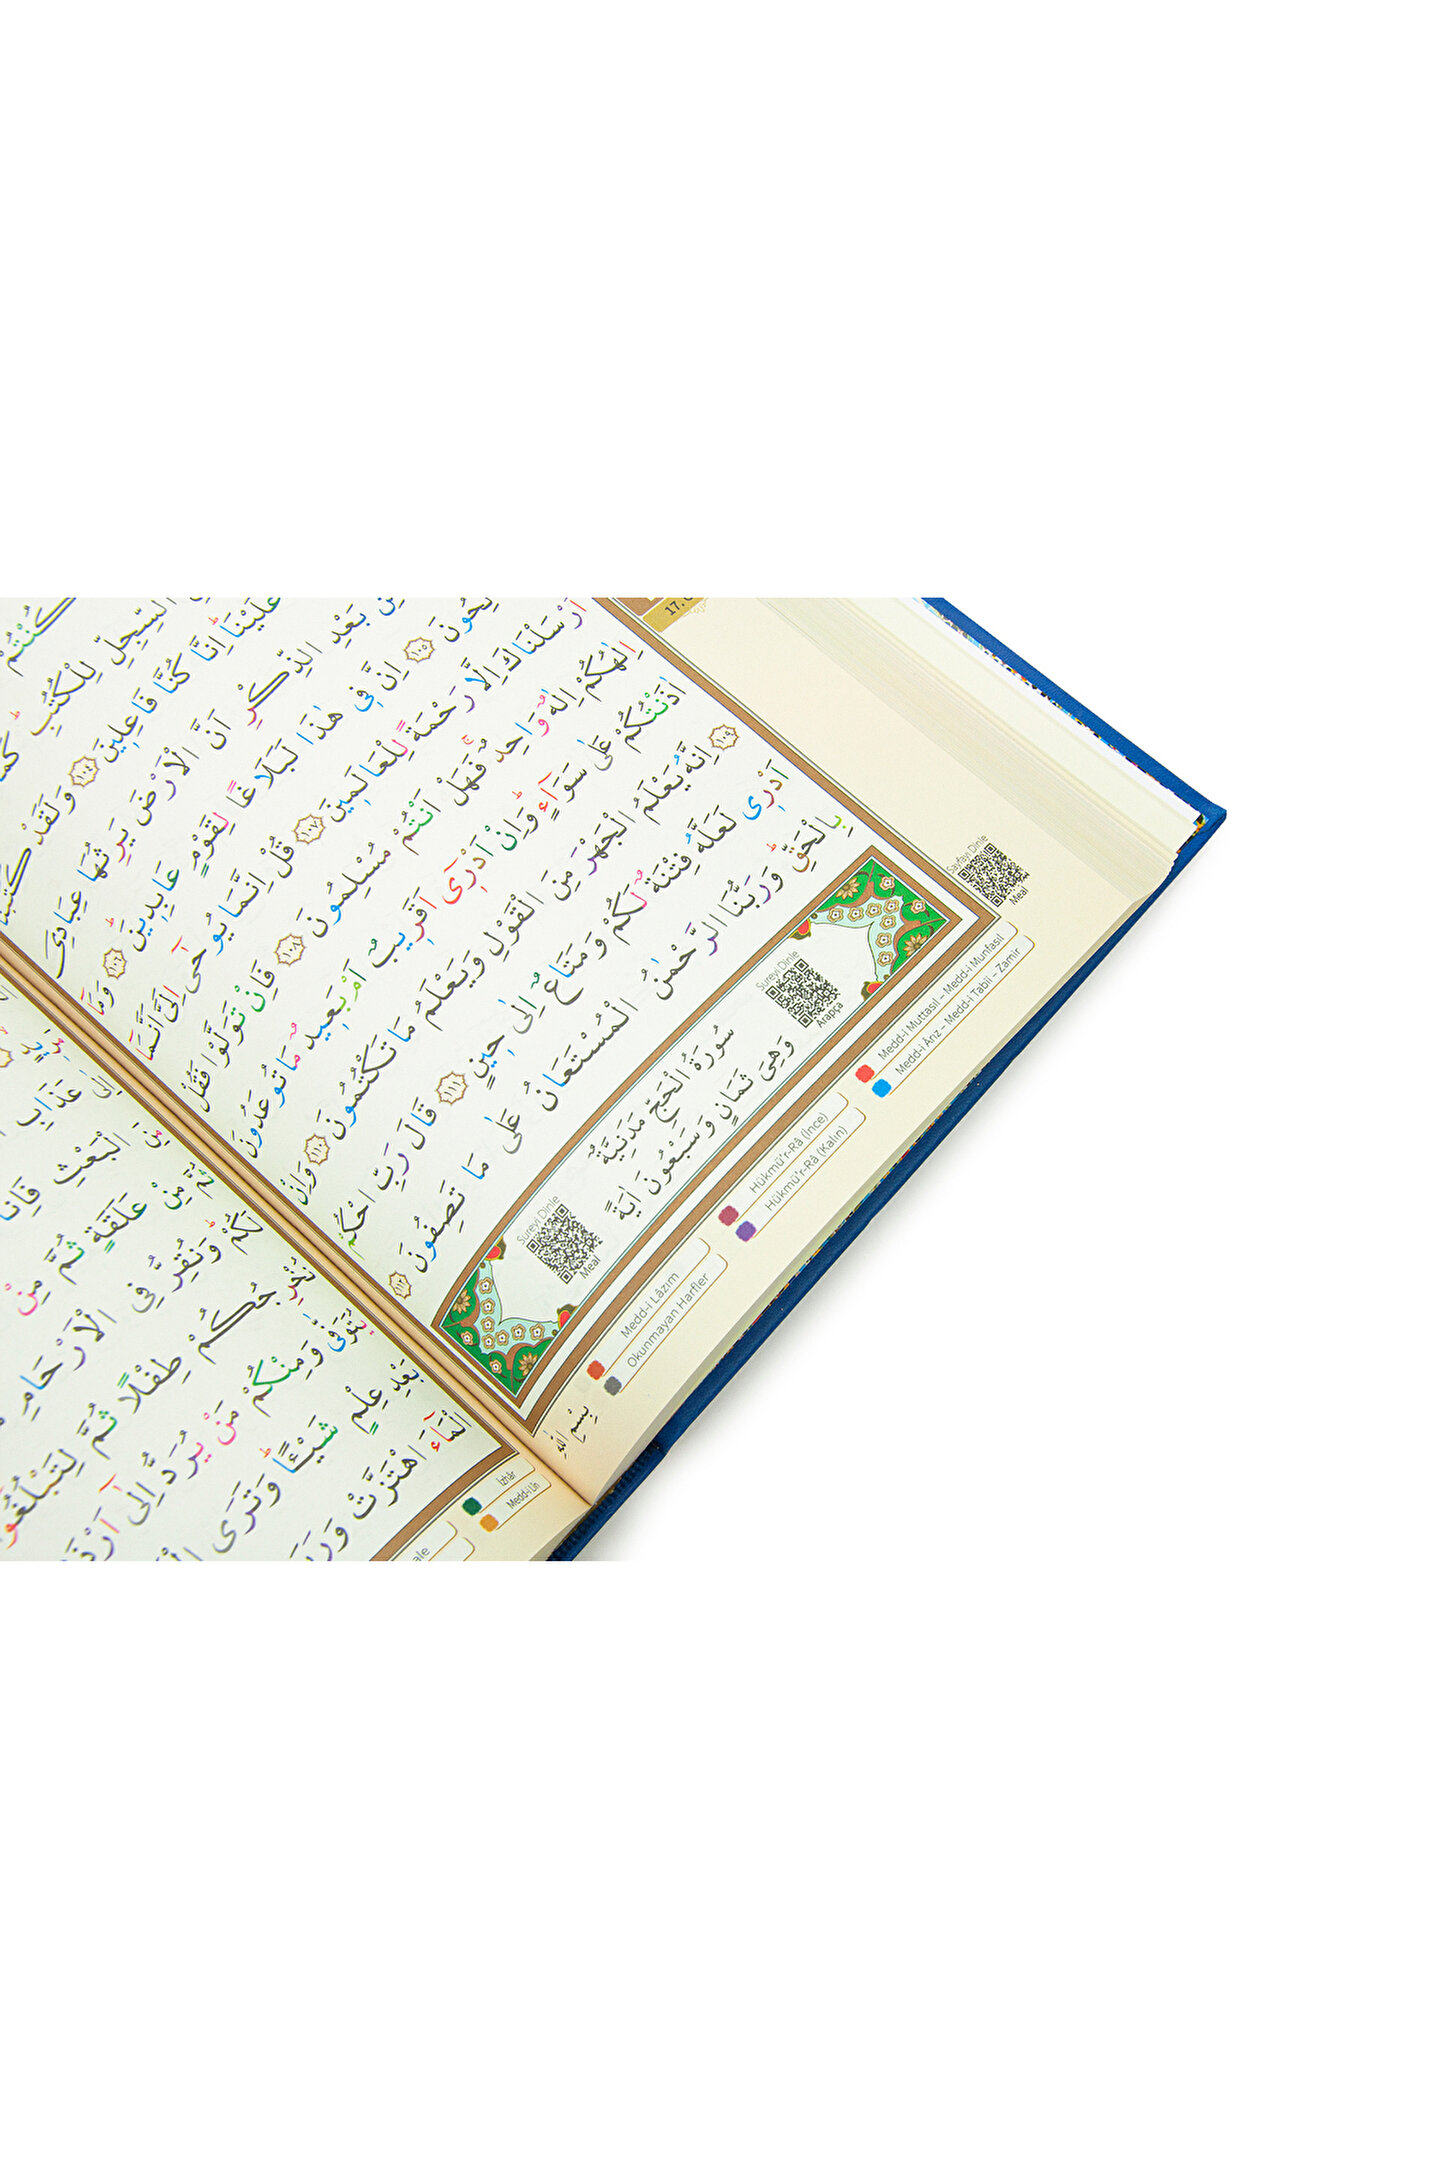 كُنْتُمْ
السِّجِلِّ لِلْكُتُبِ
عَلَيْنَا اِنَّا كُنَّا فَاعِلِينَ ﴿١٠٤﴾ وَلَقَدْ كَتَبْنَا
بَعْدِ الذِّكْرِ اَنَّ الْاَرْضَ يَرِثُهَا عِبَادِيَ
﴿١٠٥﴾ اِنَّ فِى هٰذَا لَبَلَاغًا لِقَوْمٍ عَابِدِينَ ﴿١٠٦﴾ وَمَا
اَرْسَلْنَاكَ اِلَّا رَحْمَةً لِلْعَالَمِينَ ﴿١٠٧﴾ قُلْ اِنَّمَا يُوحٰٓى اِلَىَّ اَنَّمَا
اِلٰهُكُمْ اِلٰهٌ وَاحِدٌ فَهَلْ اَنْتُمْ مُسْلِمُونَ ﴿١٠٨﴾ فَاِنْ تَوَلَّوْا فَقُلْ
اٰذَنْتُكُمْ عَلٰى سَوَٓاءٍ وَاِنْ اَدْرِىٓ اَقَرِيبٌ اَمْ بَعِيدٌ مَا تُوعَدُونَ
﴿١٠٩﴾ اِنَّهُ يَعْلَمُ الْجَهْرَ مِنَ الْقَوْلِ وَيَعْلَمُ مَا تَكْتُمُونَ ﴿١١٠﴾ وَاِنْ
اَدْرِى لَعَلَّهُ فِتْنَةٌ لَكُمْ وَمَتَاعٌ اِلٰى حِينٍ ﴿١١١﴾ قَالَ رَبِّ احْكُمْ
بِالْحَقِّ وَرَبُّنَا الرَّحْمٰنُ الْمُسْتَعَانُ عَلٰى مَا تَصِفُونَ ﴿١١٢﴾
Sureyi Dinle
Arapça
سُورَةُ الْحَجِّ مَدَنِيَّةٌ
وَهِىَ ثَمَانٍ وَسَبْعُونَ اٰيَةً
Sureyi Dinle
Meal
Sayfayı Dinle
Meal
Medd-i Muttasıl - Medd-i Munfasıl
Medd-i Ârız - Medd-i Tabii - Zamir
Hükmü'r-Râ (İnce)
Hükmü'r-Râ (Kalın)
Medd-i Lâzım
Okunmayan Harfler
بِسْمِ اللّٰهِ
عَذَابِ
الْبَعْثِ فَاِنَّا
مِنْ عَلَقَةٍ ثُمَّ مِنْ
لَكُمْ وَنُقِرُّ فِى الْاَرْحَامِ
نُخْرِجُكُمْ طِفْلًا ثُمَّ لِتَبْلُغُوا
يُتَوَفّٰى وَمِنْكُمْ مَنْ يُرَدُّ اِلٰٓى اَرْذَلِ
بَعْدِ عِلْمٍ شَيْئًا وَتَرَى
الْمَٓاءَ اهْتَزَّتْ وَرَبَتْ
İzhâr
Medd-i Lîn